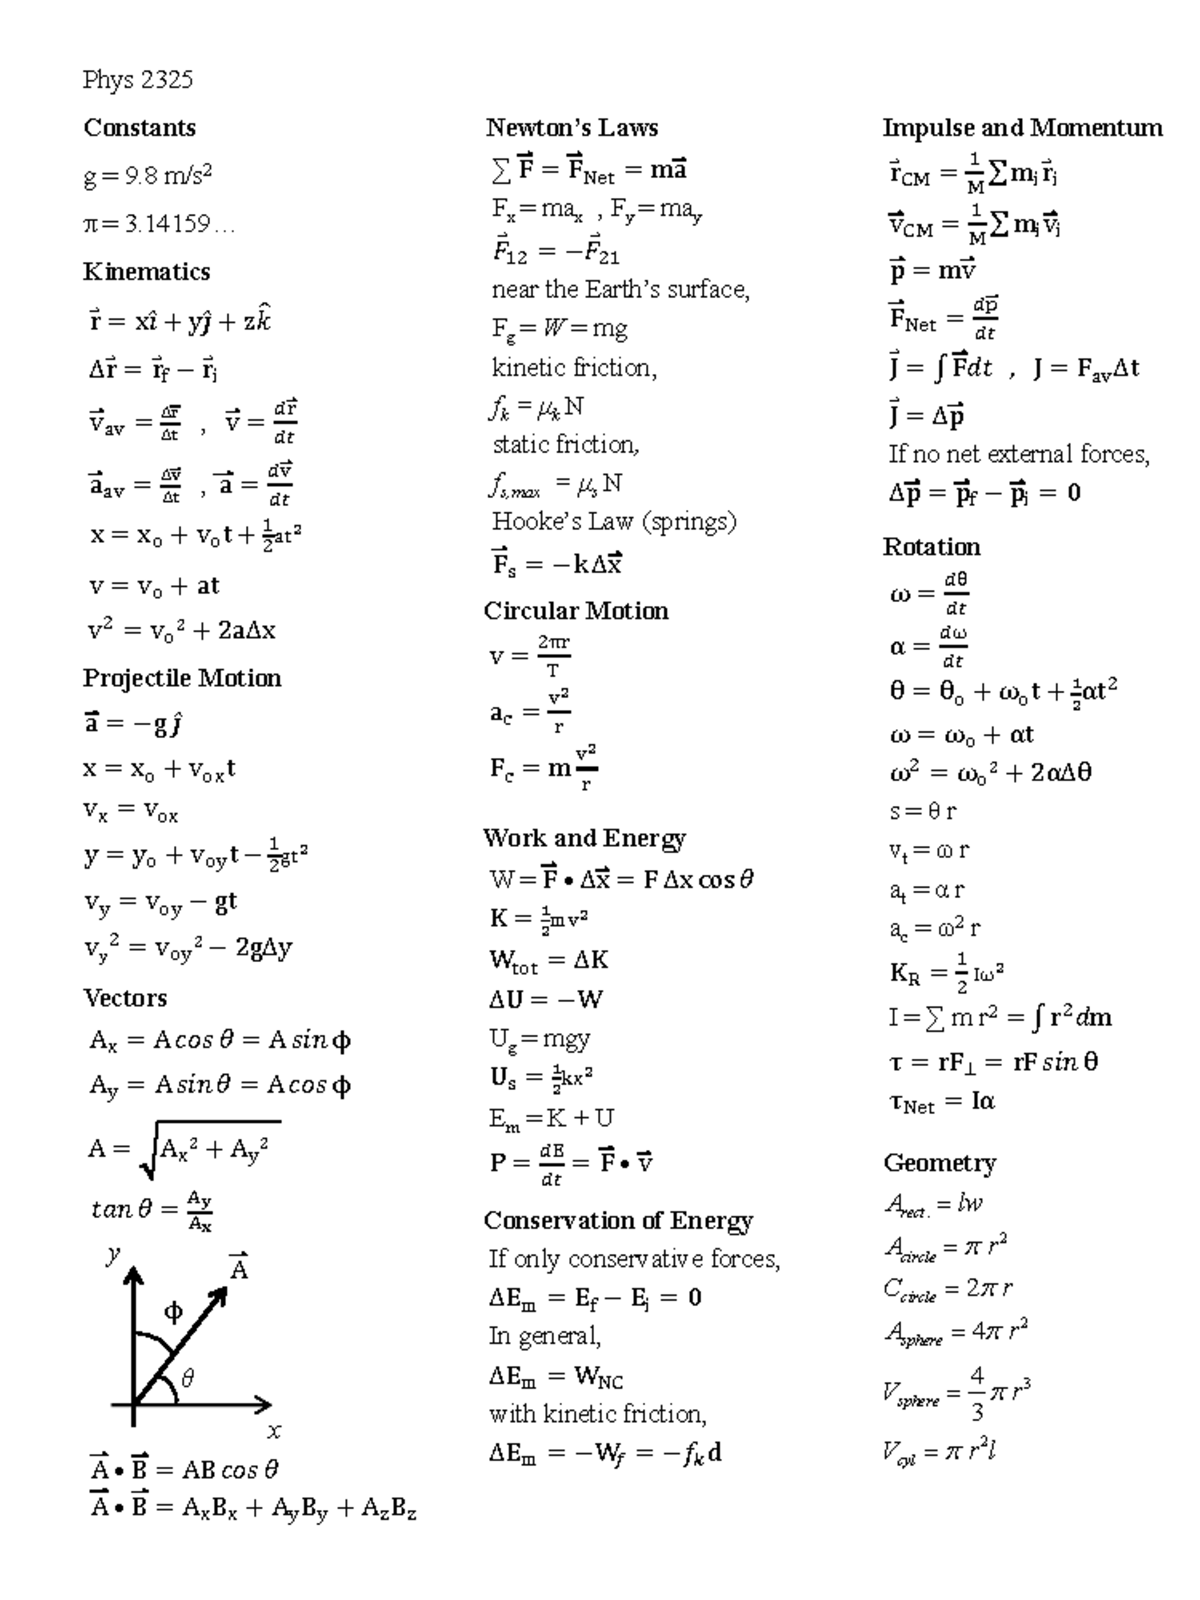 Phys 2325
Constants
g = 9.8 m/s²
π = 3.14159…
Kinematics
r⃗ = xî + yĵ + zk̂
Δr⃗ = r⃗_f − r⃗_i
v⃗_av = Δr⃗/Δt , v⃗ = dr⃗/dt
a⃗_av = Δv⃗/Δt , a⃗ = dv⃗/dt
x = x_o + v_o t + ½at²
v = v_o + at
v² = v_o² + 2aΔx
Projectile Motion
a⃗ = −gĵ
x = x_o + v_ox t
v_x = v_ox
y = y_o + v_oy t − ½gt²
v_y = v_oy − gt
v_y² = v_oy² − 2gΔy
Vectors
A_x = A cos θ = A sin ϕ
A_y = A sin θ = A cos ϕ
A = √(A_x² + A_y²)
tan θ = A_y/A_x
y
A⃗
ϕ
θ
x
A⃗ • B⃗ = AB cos θ
A⃗ • B⃗ = A_xB_x + A_yB_y + A_zB_z
Newton's Laws
∑ F⃗ = F⃗_Net = ma⃗
F_x = ma_x , F_y = ma_y
F⃗_12 = −F⃗_21
near the Earth's surface,
F_g = W = mg
kinetic friction,
f_k = μ_k N
static friction,
f_s,max = μ_s N
Hooke's Law (springs)
F⃗_s = −kΔx⃗
Circular Motion
v = 2πr/T
a_c = v²/r
F_c = m v²/r
Work and Energy
W = F⃗ • Δx⃗ = F Δx cos θ
K = ½mv²
W_tot = ΔK
ΔU = −W
U_g = mgy
U_s = ½kx²
E_m = K + U
P = dE/dt = F⃗ • v⃗
Conservation of Energy
If only conservative forces,
ΔE_m = E_f − E_i = 0
In general,
ΔE_m = W_NC
with kinetic friction,
ΔE_m = −W_f = −f_k d
Impulse and Momentum
r⃗_CM = 1/M ∑ m_i r⃗_i
v⃗_CM = 1/M ∑ m_i v⃗_i
p⃗ = mv⃗
F⃗_Net = dp⃗/dt
J⃗ = ∫ F⃗dt , J = F_av Δt
J⃗ = Δp⃗
If no net external forces,
Δp⃗ = p⃗_f − p⃗_i = 0
Rotation
ω = dθ/dt
α = dω/dt
θ = θ_o + ω_o t + ½αt²
ω = ω_o + αt
ω² = ω_o² + 2αΔθ
s = θ r
v_t = ω r
a_t = α r
a_c = ω² r
K_R = ½ Iω²
I = ∑ m r² = ∫ r² dm
τ = rF_⊥ = rF sin θ
τ_Net = Iα
Geometry
A_rect. = lw
A_circle = π r²
C_circle = 2π r
A_sphere = 4π r²
V_sphere = 4/3 π r³
V_cyl = π r² l